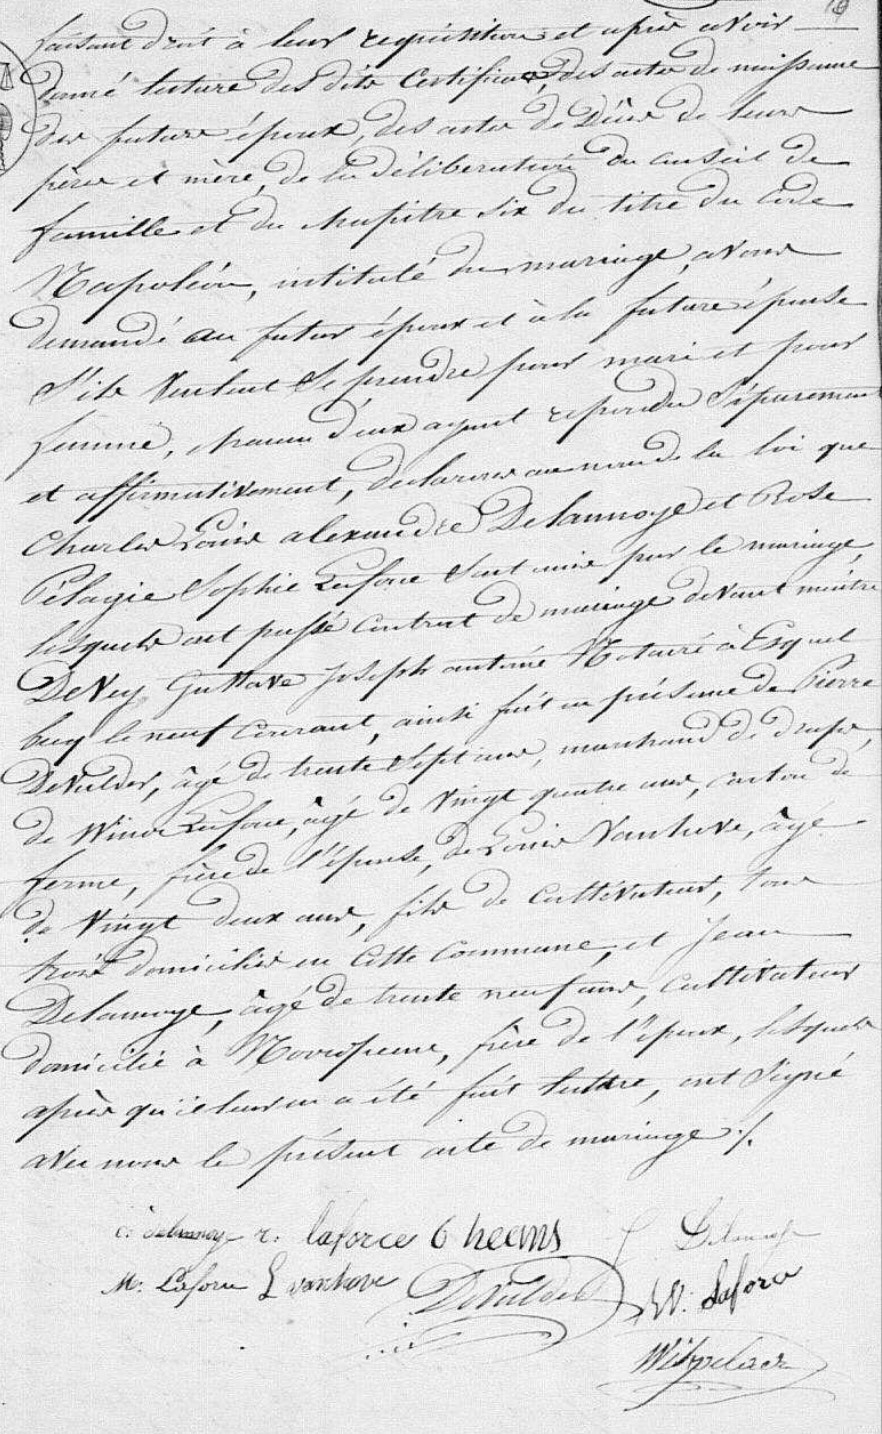 faisant droit à leur réquisition et après avoir
donné lecture des dits certificats, des actes de naissance
des futurs époux, des actes de Décès de leurs
pères et mère, de la déliberation du conseil de
famille et du chapitre six du titre du Code
Napoléon, intitulé du mariage, avons
demandé au futur époux et à la future épouse
s'ils veulent se prendre pour mari et pour
femme, chacun d'eux ayant repondu séparement
et affirmativement, declarons au nom de la loi que
Charles Louis alexandre Delannoye et Rose
Pélagie Sophie Laforce sont unis par le mariage,
lesquels ont passé contrat de mariage devant maitre
Devey Gustave Joseph antoine Notaire à Esquel
becq le neuf courant, ainsi fait en présence de Pierre
Devulder, âgé de trente sept ans, marchand de draps,
de Winoc Laforce, âgé de vingt quatre ans, de
ferme, frère de l'épouse, de Louis Vanhove, âgé
de vingt deux ans, fils de cultivateur, tous
trois domiciliés en cette Commune, et Jean
Delannoye, âgé de trente neuf ans, cultivateur
domicilié à, frère de l'époux, lesquels
après qu'il leur en a été fait lecture, ont signé
avec nous le présent acte de mariage ./.
c. delannoye r. laforce C heems J Delannoye
M. Laforce L vanhove Devulder W. Laforce